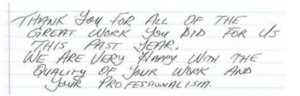 THANK YOU FOR ALL OF THE
GREAT WORK YOU DID FOR US
THIS PAST YEAR.
WE ARE VERY HAPPY WITH THE
QUALITY OF YOUR WORK AND
YOUR PROFESSIONALISM.